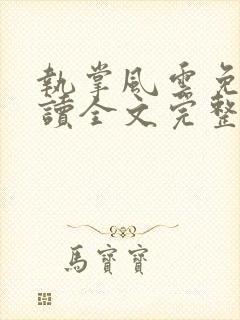 執掌風雲免
讀全文完整
馬寶寶